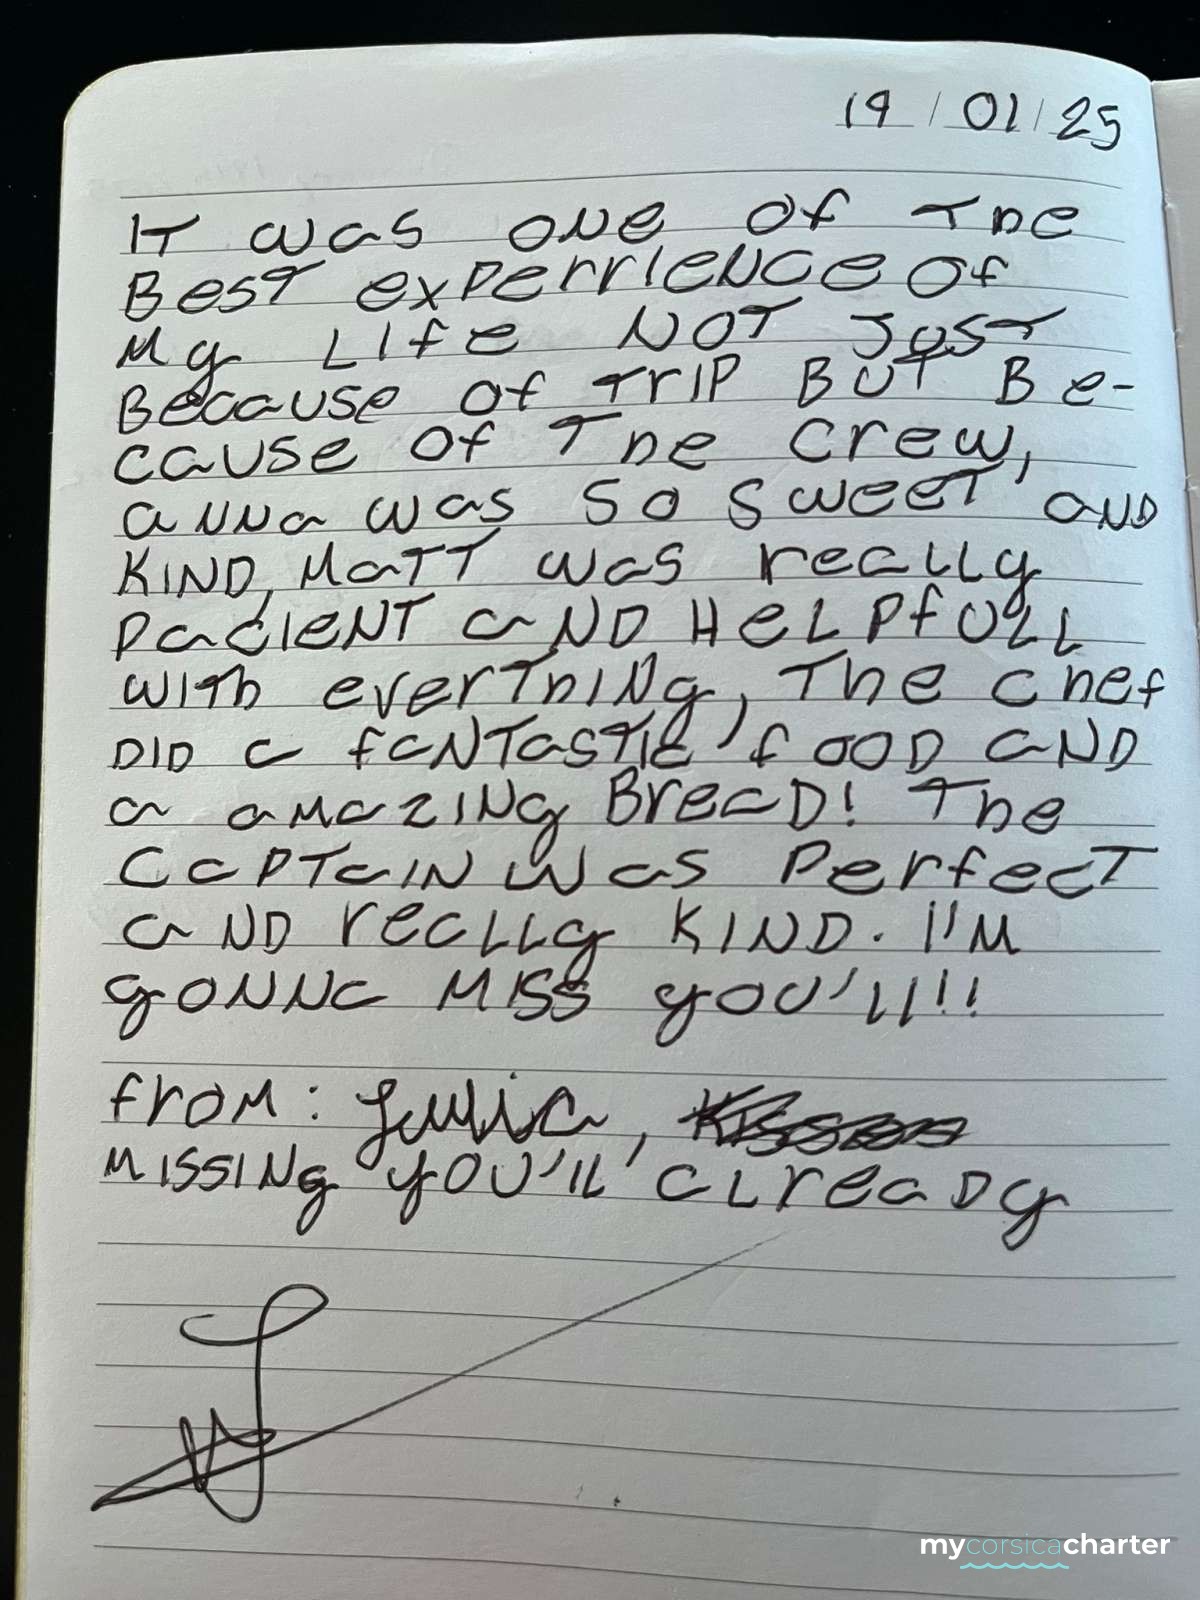 19/01/25
IT was one of The
Best experrience of
My Life NOT Just
Because of Trip BUT Be-
cause of The crew,
anna was so sweet and
KIND, Matt was really
pacient and Helpfull
with everthing, The chef
DID a fantastic food and
a amazing Bread! The
Captain was perfect
and really KIND. I'm
gonna miss you'll!!
from: Julia,
missing you'll already
mycorsicacharter